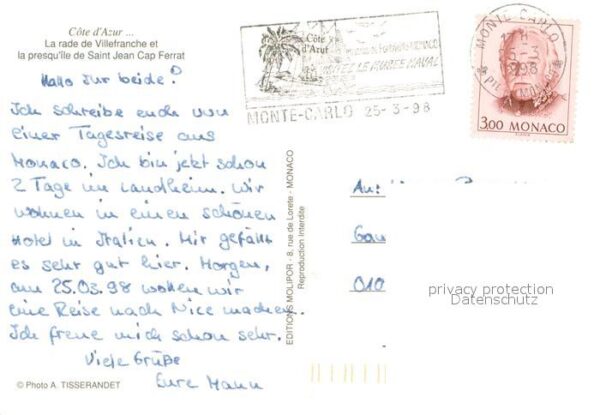 Côte d'Azur ...
La rade de Villefranche et
la presqu'île de Saint Jean Cap Ferrat
Hallo Jur beide!
Ich schreibe euch von
einer Tagesreise aus
Monaco. Ich bin jetzt schon
2 Tage im Landheim. Wir
wohnen in einen schönen
Hotel in Italien. Mir gefällt
es sehr gut hier. Morgen,
am 25.03.98 wollen wir
eine Reise nach Nice machen.
Ich freue mich schon sehr.
Viele Grüße
Eure
© Photo A. TISSERANDET
EDITIONS MOLIPOR - 8, rue de Lorete - MONACO
Reproduction Interdite
Côte
d'Azur
VISITEZ LE MUSEE NAVAL
MONTE-CARLO 25-3-98
MONTE-CARLO
3,00 MONACO
An:
010
privacy protection
Datenschutz